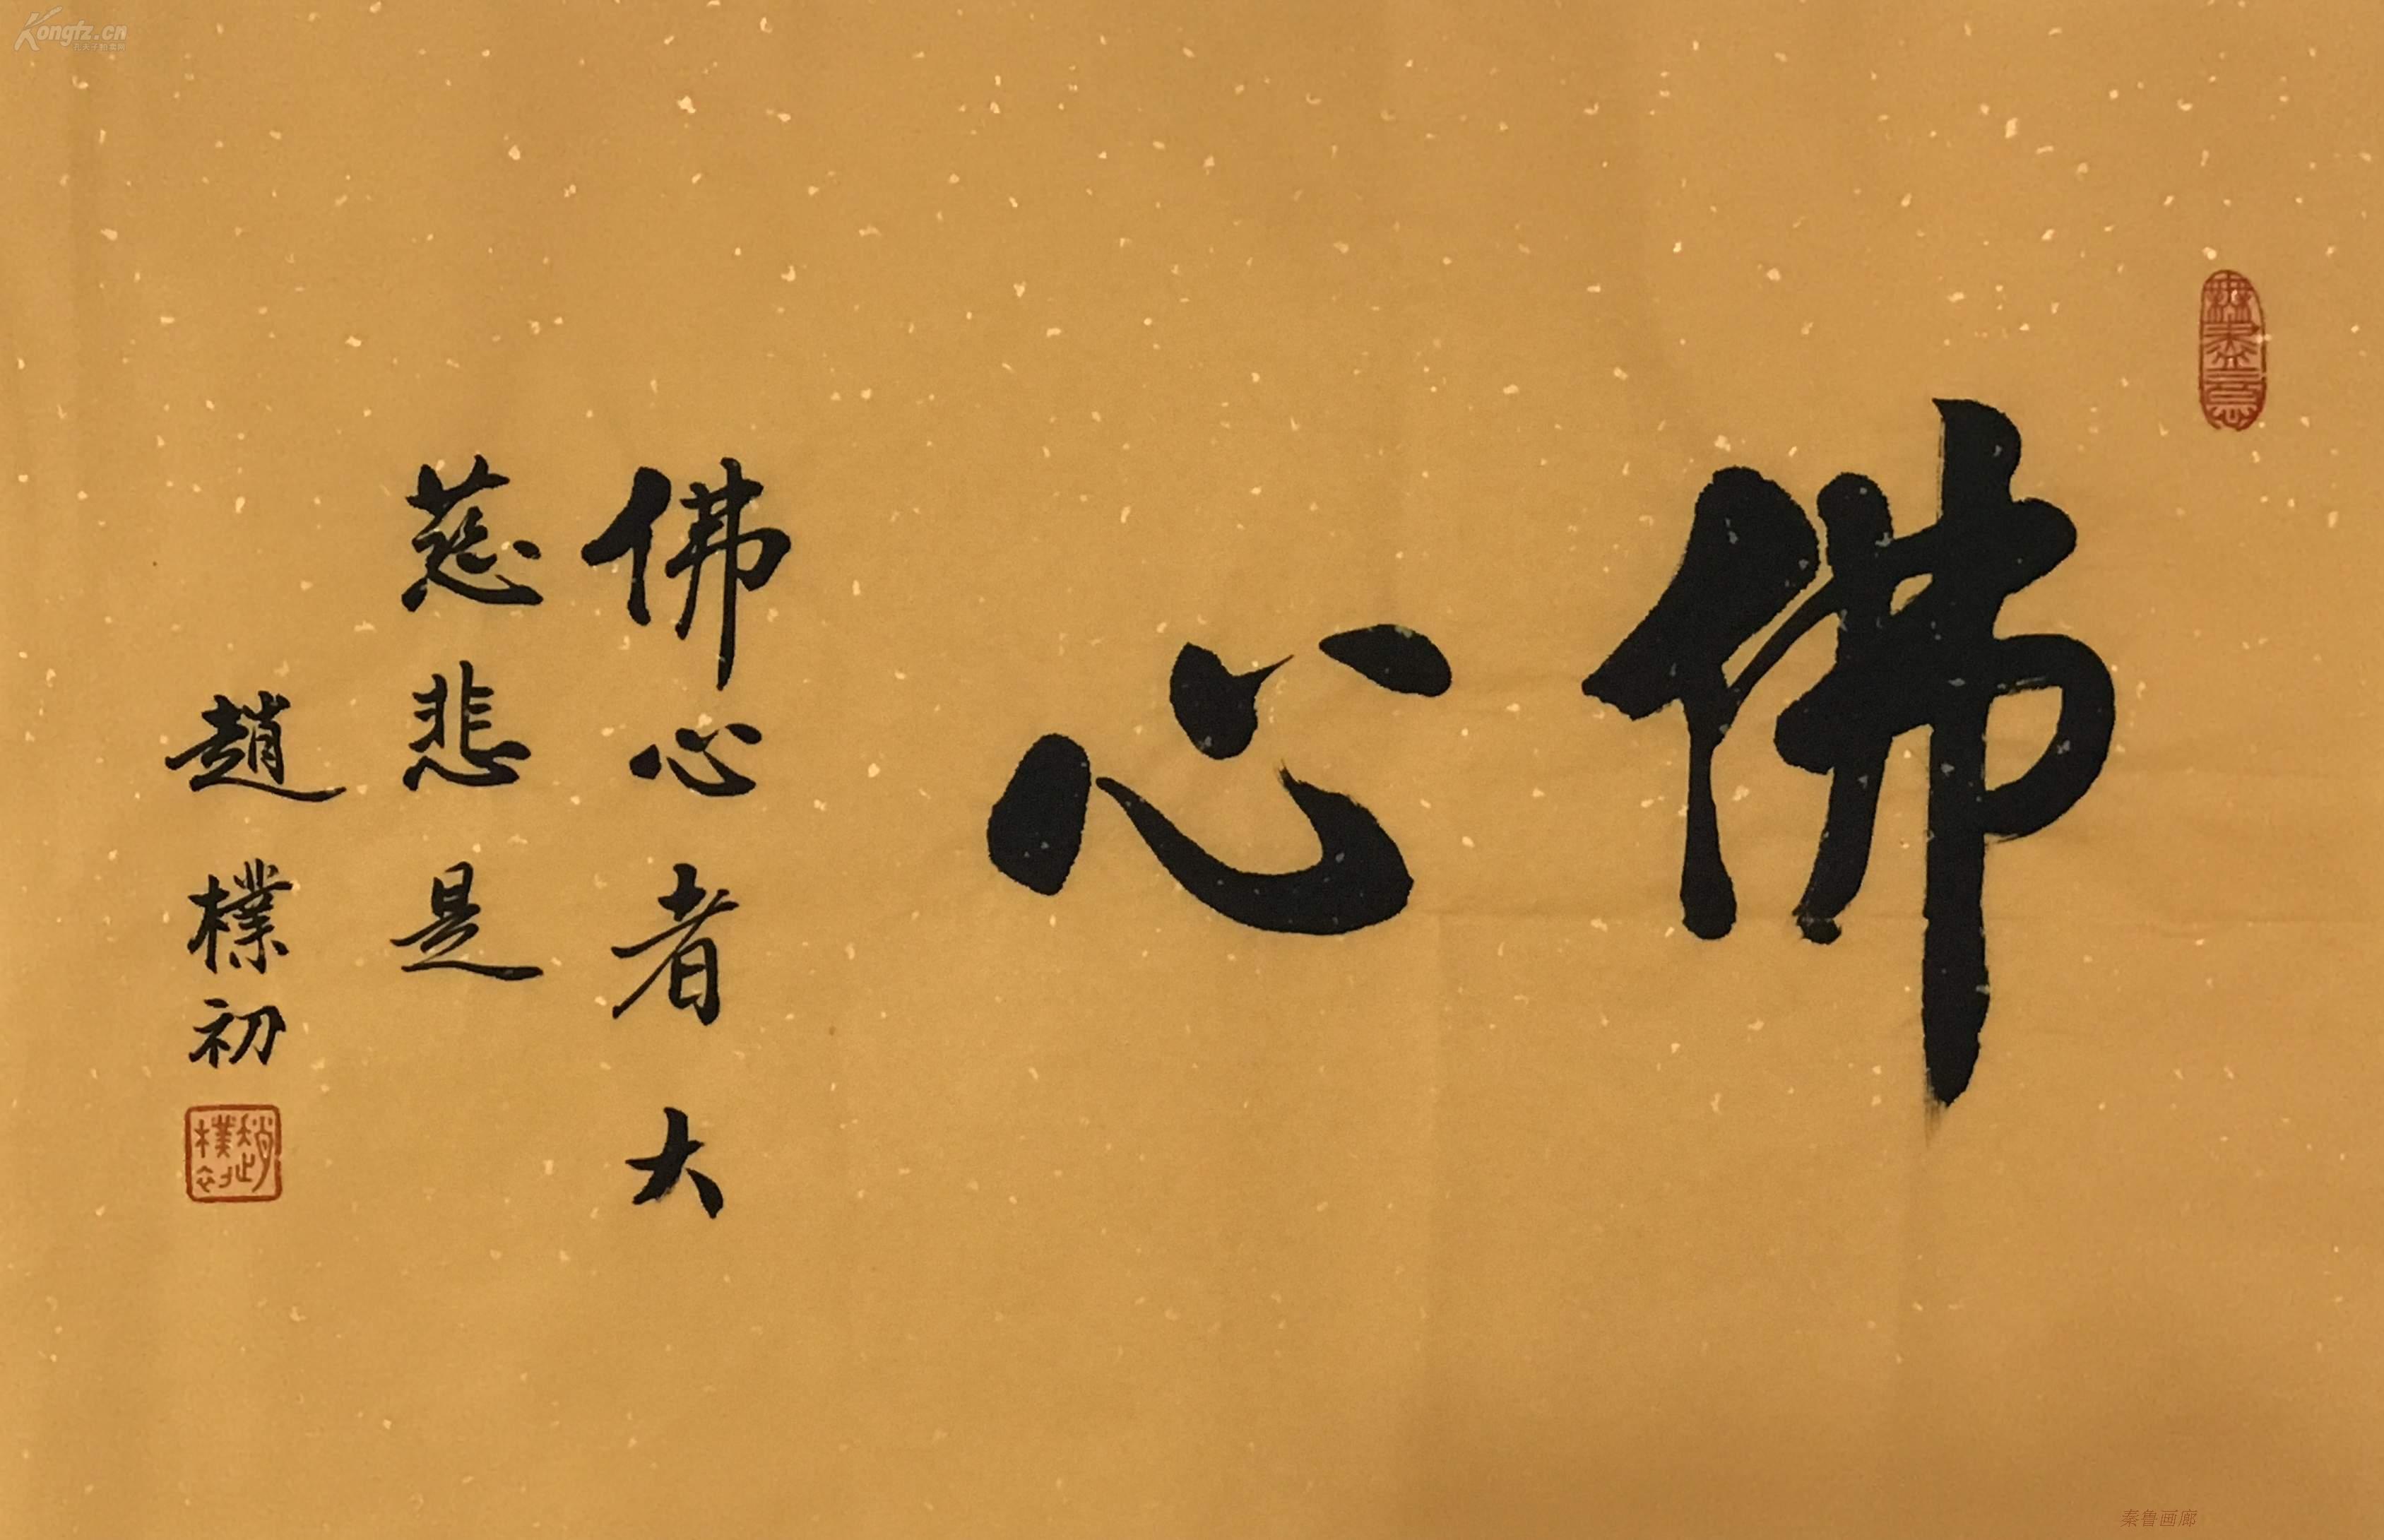 佛心
佛心者大
慈悲是
趙樸初
趙樸初
Kongfz.cn
秦鲁画廊